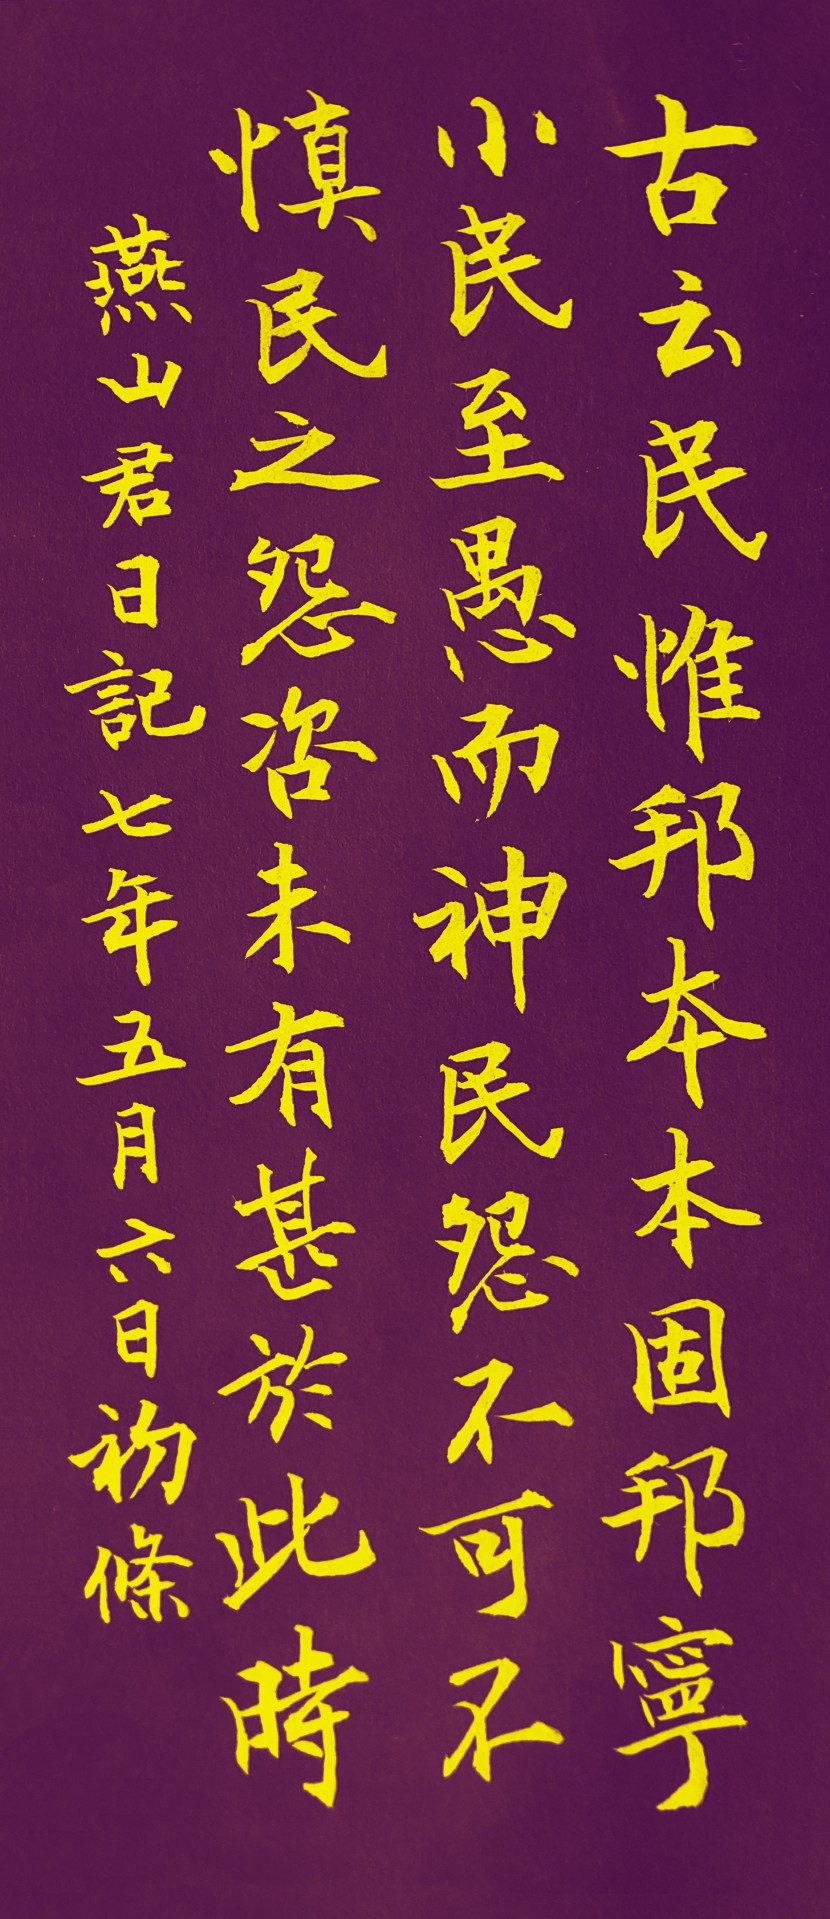 古云民惟邦本本固邦寧
小民至愚而神民怨不可不
慎民之怨咨未有甚於此時
燕山君日記七年五月六日初條